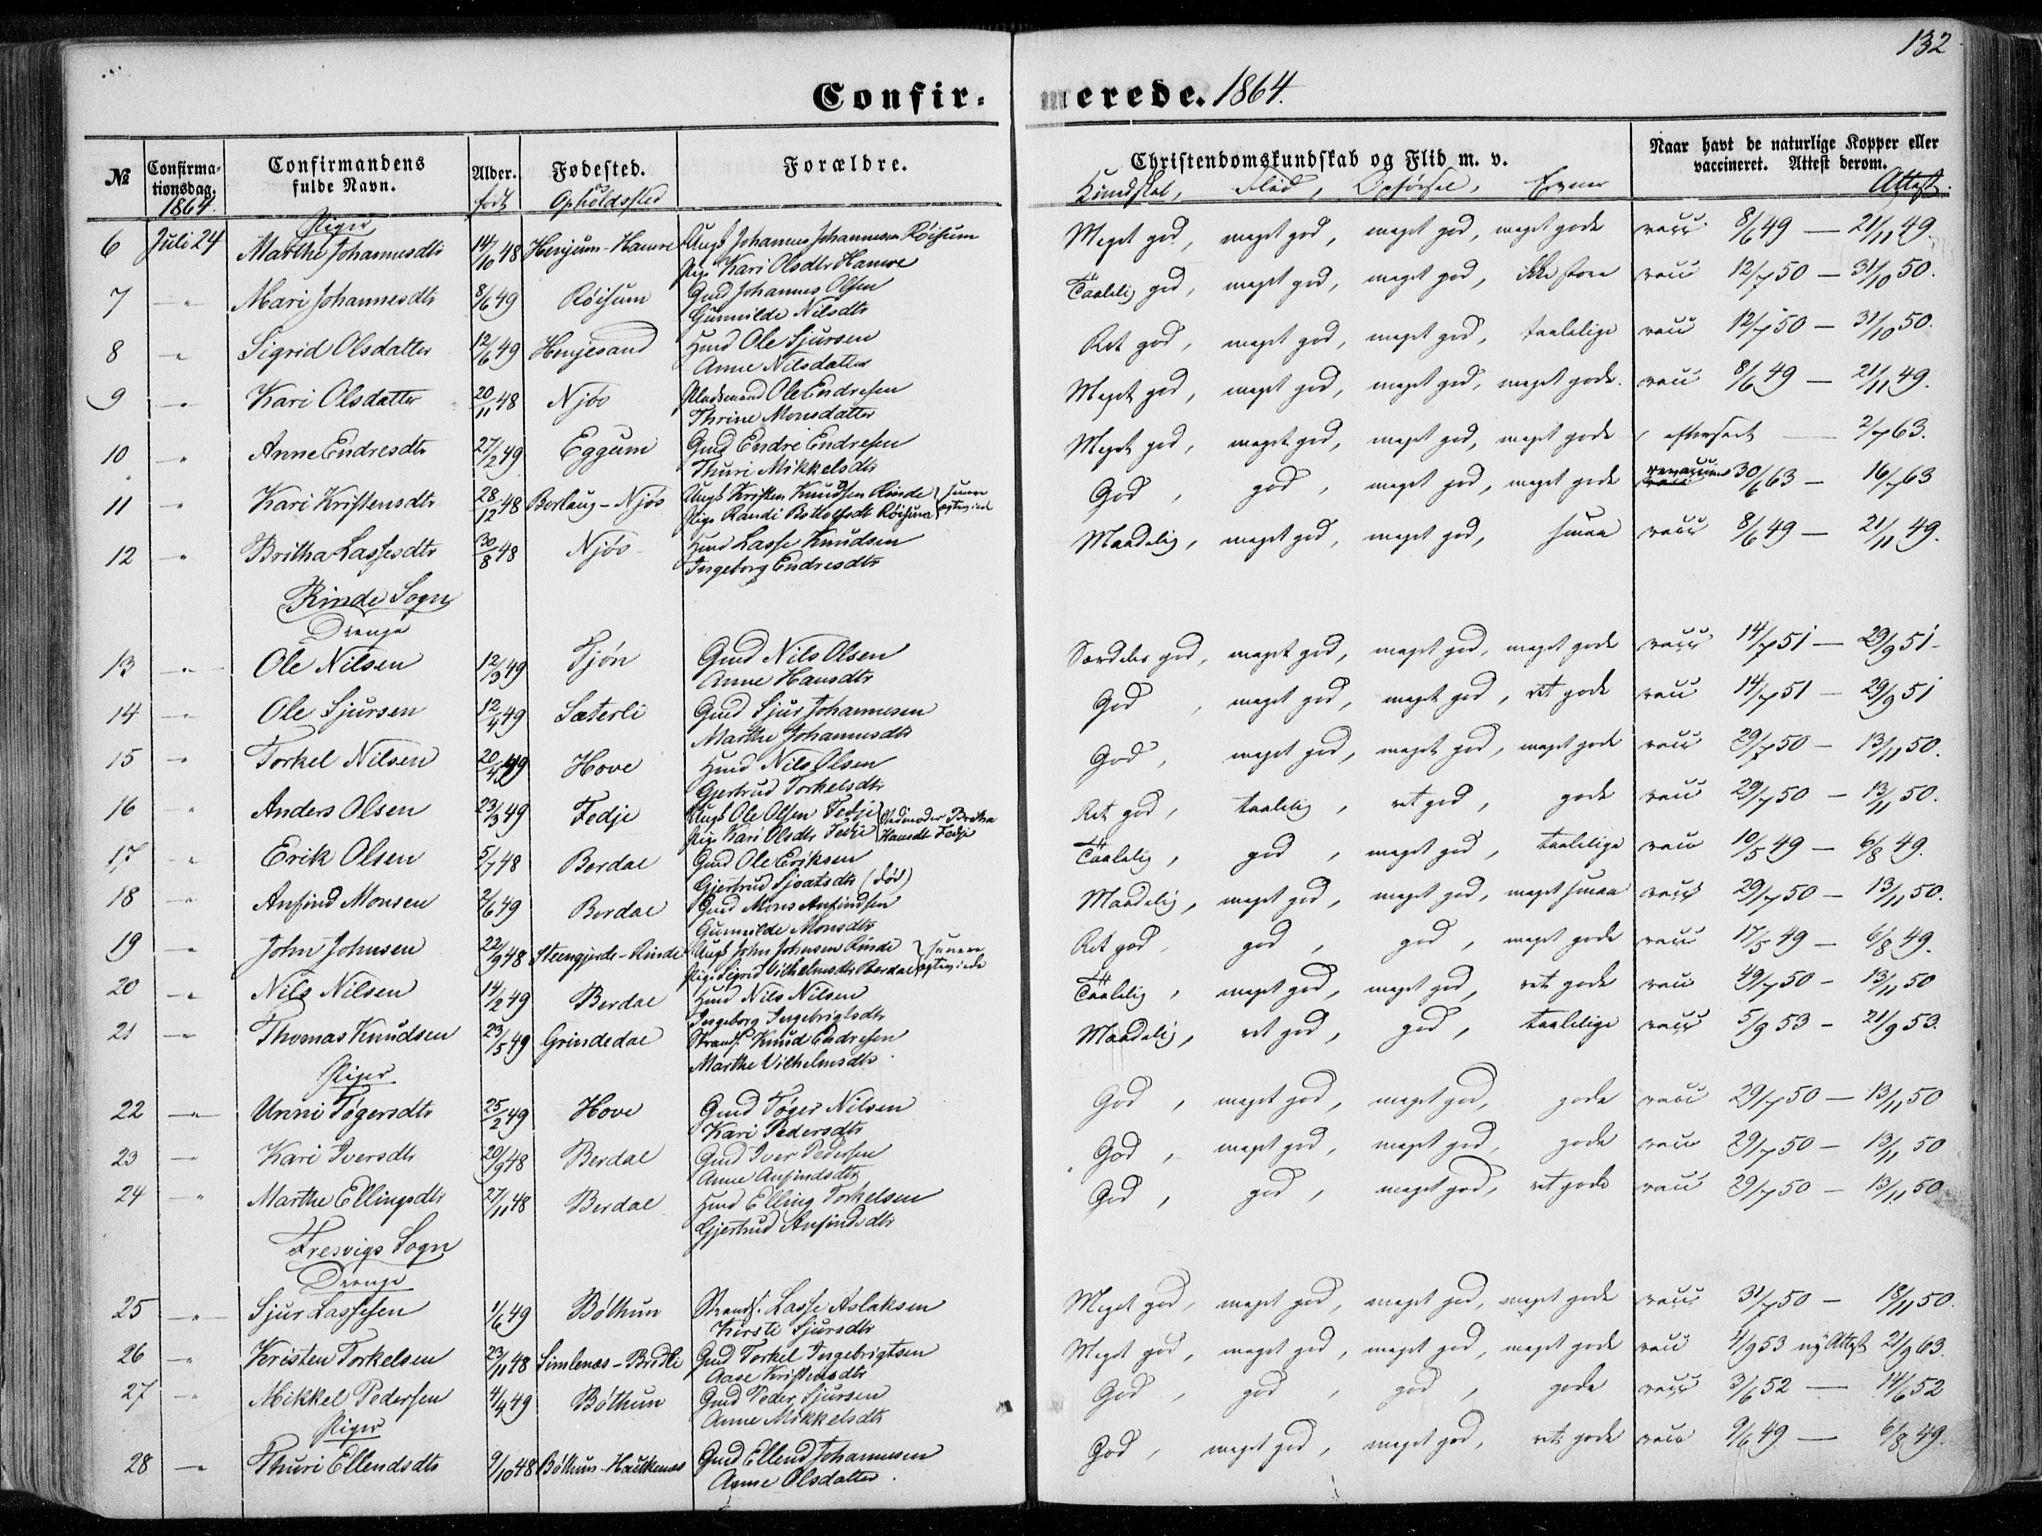 132
Confir- merede. 1864.
№ Confirma-tionsdag. 1864. Confirmandens fulde Navn. Alder. født Fødested. og Opholdssted Forældre. Christendomskundskab og Flid m. v. Kundskab, Flid, Opførsel, Evner Naar havt de naturlige Kopper eller vaccineret. Attest derom. Attest.
Piger
6 Juli 24 Marthe Johannesdtr 14/10 48 Henjum-Hamre Ungk Johannes Johannesen Röisum Meget god, meget god, meget god, meget gode vacc 8/6 49 — 21/11 49.
Pige Kari Olsdtr Hamre
7 " Mari Johannesdtr 8/6 49 Röisum Gmd Johannes Olsen Taalelig god, meget god, meget god, ikke store vacc 12/7 50 — 31/10 50.
Gunnilde Nilsdtr
8 " Sigrid Olsdatter 12/6 49 Henjesand Hmd Ole Sjursen Ret god, meget god, meget god, taalelige vacc 12/7 50 — 31/10 50.
Anne Nilsdatter
9 " Kari Olsdatter 20/11 48 Njøs Pladsmand Ole Endresen Meget god, meget god, meget god, meget gode. vacc 8/6 49 — 21/11 49.
Thrine Monsdatter
10 " Anne Endresdtr 27/2 49 Eggum Gmd Endre Endresen Meget god, meget god, meget god, meget gode efterseet — 2/7 63.
Thuri Mikkelsdtr
11 " Kari Kristensdtr 28/12 48 Borlaug-Njøs Ungk Kristen Knudsen Rinde } senere God, god, meget god, meget gode revaccineret 30/6 63 — 16/7 63
Pige Randi Bottolfsdtr Röisum } egteviede
12 " Britha Lassesdtr 30/8 48 Njøs Hmd Lasse Knudsen Maadelig, meget god, meget god, smaa vacc 8/6 49 — 21/11 49.
Ingeborg Endresdtr
Rinde Sogn
Drenge
13 " Ole Nilsen 12/3 49 Tjøn Gmd Nils Olsen Særdeles god, meget god, meget god, meget gode vacc 14/7 51 — 29/9 51-
Anne Hansdtr
14 " Ole Sjursen 12/4 49 Sæterli Gmd Sjur Johannesen God, meget god, meget god, ret gode vacc 14/7 51 — 29/9 51
Marthe Johannesdtr
15 " Torkel Nilsen 20/4 49 Hove Hmd Nils Olsen God, meget god, meget god, meget gode vacc 29/7 50 — 13/11 50.
Gjertrud Torkelsdtr
16 " Anders Olsen 23/3 49 Fedje Ungk Ole Olsen Fedje } Stedmoder Britha Ret god, taalelig, ret god, gode vacc 29/7 50 — 13/11 50.
Pige Kari Olsdtr Fedje } Hansdtr Fedje
17 " Erik Olsen 5/7 48 Berdal Gmd Ole Eriksen Taalelig, god, meget god, taalelige vacc 10/5 49 — 6/8 49.
Gjertrud Sjoatsdtr (død)
18 " Anfind Monsen 2/6 49 Berdal Gmd Mons Anfindsen Maadelig, meget god, meget god, meget smaa vacc 29/7 50 — 13/11 50.
Gunnilde Monsdtr
19 " John Johnsen 22/9 48 Steengjerde-Rinde Ungk John Johnsen Rinde } senere Ret god, god, god, meget gode vacc 17/5 49 — 6/8 49.
Pige Sigrid Vilhelmsdtr Berdal } egteviede
20 " Nils Nilsen 14/2 49 Berdal Hmd Nils Nilsen Taalelig, meget god, meget god, ret gode vacc 29/7 50 — 13/11 50
Ingeborg Ingebrigtsdtr
21 " Thomas Knudsen 23/5 49 Grindedal Strands. Knud Endresen Maadelig, ret god, god, taalelige vacc 5/9 53 - 21/9 53.
Marthe Vilhelmsdtr
Piger
22 " Unni Tøgersdtr 25/2 49 Hove Gmd Tøger Nilsen God, meget god, meget god, gode vacc 29/7 50 — 13/11 50
Kari Pedersdtr
23 " Kari Iversdtr 20/9 48 Berdal Gmd Iver Pedersen God, meget god, meget god, gode vacc 29/7 50 — 13/11 50
Anne Anfindsdtr
24 " Marthe Ellingsdtr 27/11 48 Berdal Hmd Elling Torkelsen God, god, meget god, ret gode vacc 29/7 50 — 13/11 50
Gjertrud Anfindsdtr
Fresvigs Sogn
Drenge
25 " Sjur Lassesen 1/6 49 Böthun Strands. Lasse Aslaksen Meget god, meget god, meget god, meget gode vacc 31/7 50 — 18/11 50.
Kirsti Sjursdtr
26 " Kristen Torkelsen 23/11 48 Simlenæs-Bredli Gmd Torkel Ingebrigtsen Meget god, meget god, meget god, meget gode vacc 4/9 53 ny Attest 21/9 63.
Aase Kristensdtr
27 " Mikkel Pedersen 4/4 49 Böthun Gmd Peder Sjursen God, god, god, gode vacc 3/6 52 — 14/6 52
Anne Mikkelsdtr
Piger
28 " Thuri Ellendsdtr 9/10 48 Böthun-Haukenæs Gmd Ellend Johannesen God, meget god, meget god, ret gode vacc 9/6 49 — 6/8 49.
Anne Olsdatter